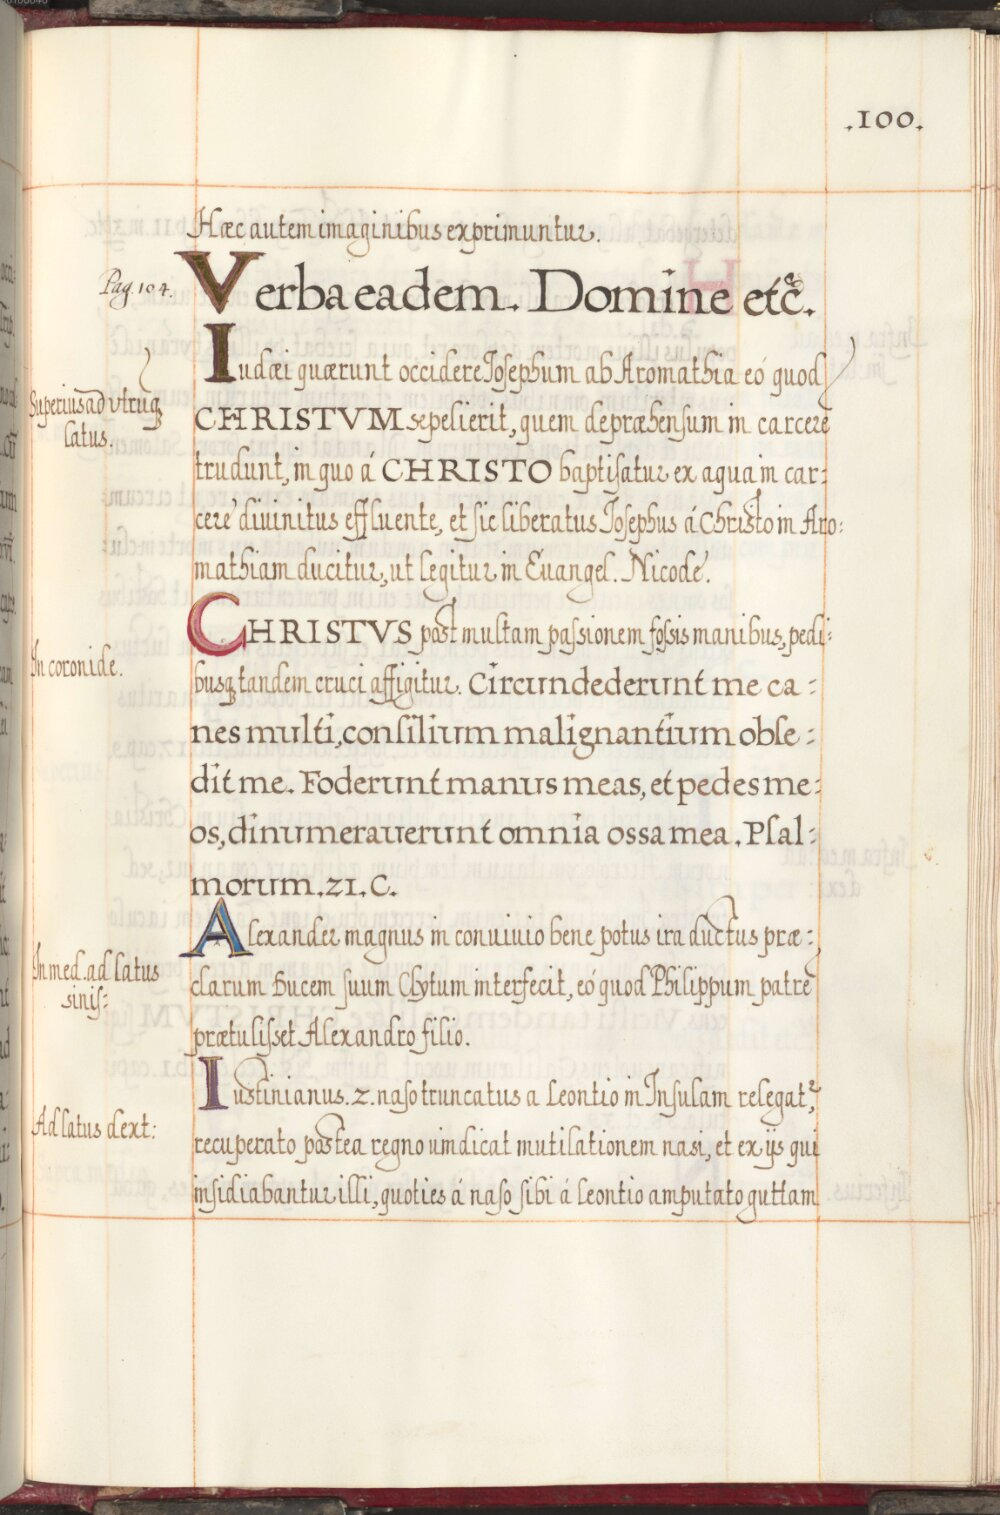 .100.
Hæc autem imaginibus exprimuntur.
Pag. 104.
Verba eadem. Domine etc̃.
Superius ad vtruq
latus.
Iudæi quærunt occidere Josephum ab Aromathia eó quod
CHRISTVM sepelierit, quem depræhensum in carcere
trudunt, in quo á CHRISTO baptisatur ex aqua in car:
cere diuinitus effluente, et sic liberatus Josephus á Christo in Aro:
mathiam ducitur, ut legitur in Euangel. Nicode.
In coronide.
CHRISTVS post multam passionem fossis manibus, pedi:
busq tandem cruci affigitur. Circumdederunt me ca:
nes multi, consilium malignantium obse:
dit me. Foderunt manus meas, et pedes me:
os, dinumerauerunt omnia ossa mea. Psal:
morum. 21. C.
In med. ad latus
sinis:
Alexander magnus in conuiuio bene potus ira ductus præ:
clarum Ducem suum Clytum interfecit, eó quod Philippum patre
prætulisset Alexandro filio.
Ad latus dext:
Iustinianus. 2. naso truncatus a Leontio in Insulam relegat,
recuperato postea regno uindicat mutilationem nasi, et ex ijs qui
insidiabantur illi, quoties á naso sibi á Leontio amputato guttam